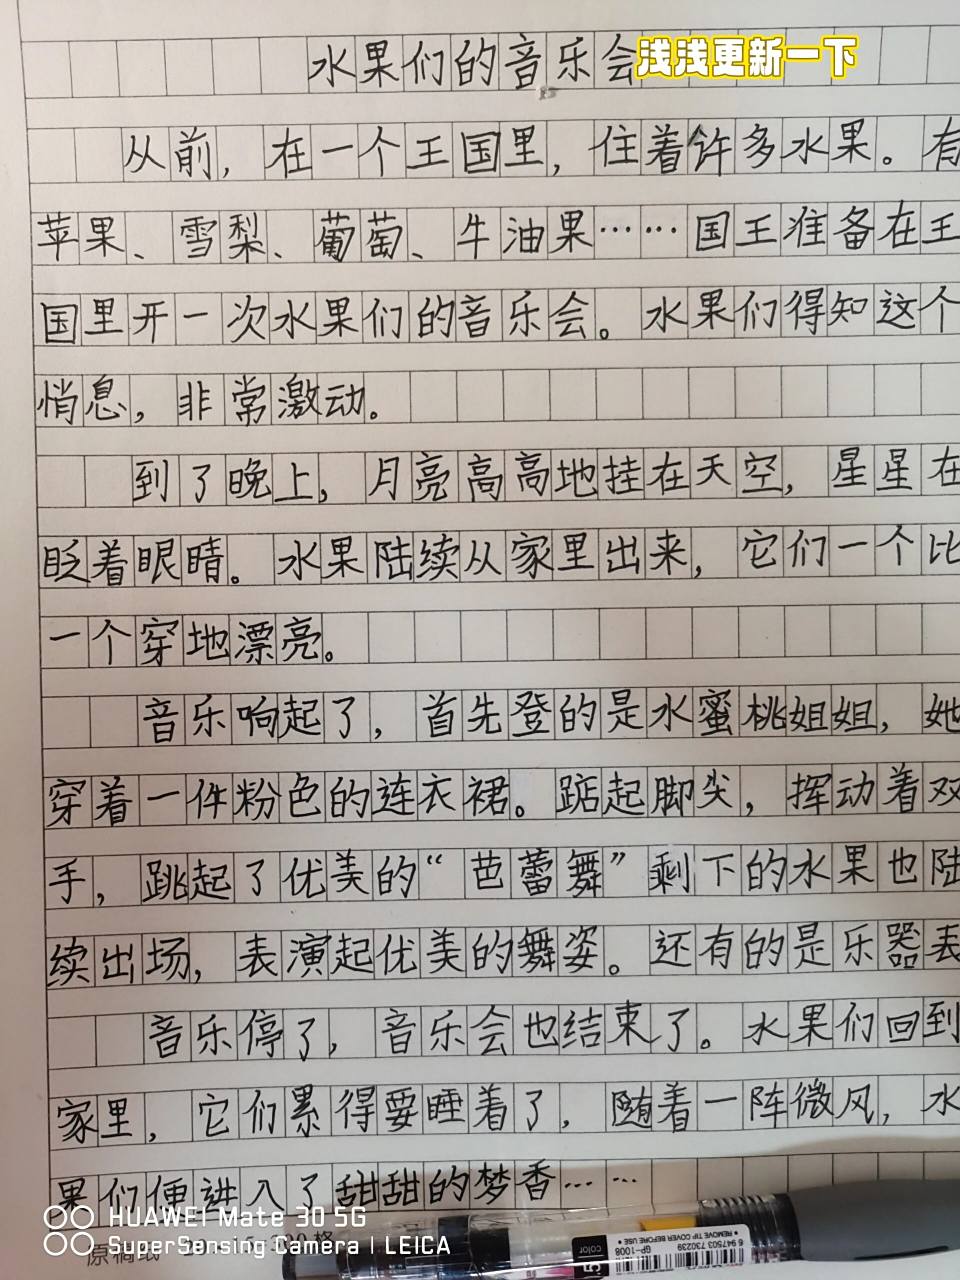 水果们的音乐会
浅浅更新一下
从前，在一个王国里，住着许多水果。有
苹果、雪梨、葡萄、牛油果……国王准备在王
国里开一次水果们的音乐会。水果们得知这个
悄息，非常激动。
到了晚上，月亮高高地挂在天空，星星在
眨着眼睛。水果陆续从家里出来，它们一个比
一个穿地漂亮。
音乐响起了，首先登的是水蜜桃姐姐，她
穿着一件粉色的连衣裙。踮起脚尖，挥动着双
手，跳起了优美的“芭蕾舞”剩下的水果也陆
续出场，表演起优美的舞姿。还有的是乐器表
音乐停了，音乐会也结束了。水果们回到
家里，它们累得要睡着了，随着一阵微风，水
果们便进入了甜甜的梦香……
HUAWEI Mate 30 5G
SuperSensing Camera | LEICA
原稿纸
color
GP-1008
6 947503 730239
• REMOVE TIP COVER BEFORE USE •